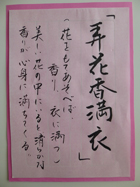 「弄花香満衣」
(花をもてあそべば、
香り、衣に満つ
美しい花の中にいると清らかな
香りが心身に満ちてくる。